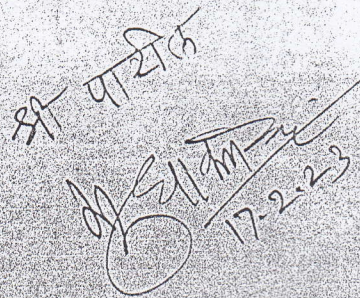 श्री पाटील
17.2.23